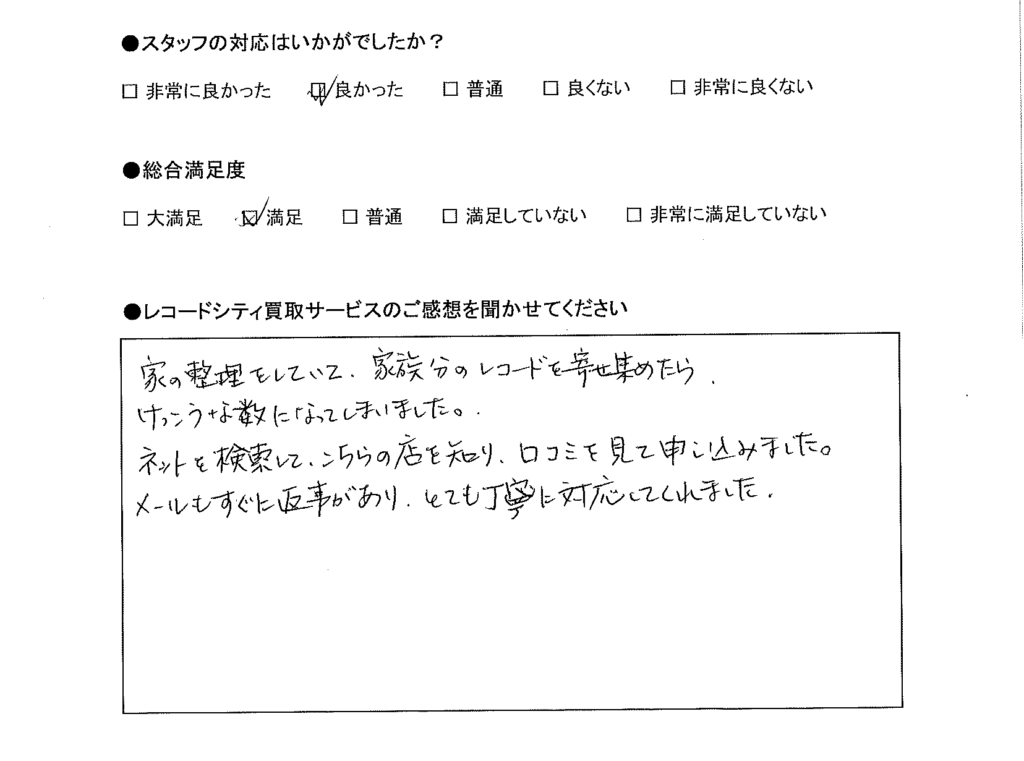 ●スタッフの対応はいかがでしたか？
□ 非常に良かった ☑ 良かった □ 普通 □ 良くない □ 非常に良くない
●総合満足度
□ 大満足 ☑ 満足 □ 普通 □ 満足していない □ 非常に満足していない
●レコードシティ買取サービスのご感想を聞かせてください
家の整理をしていて、家族分のレコードを寄せ集めたら、
けっこうな数になってしまいました。
ネットを検索して、こちらの店を知り、口コミを見て申し込みました。
メールもすぐに返事があり、とても丁寧に対応してくれました。